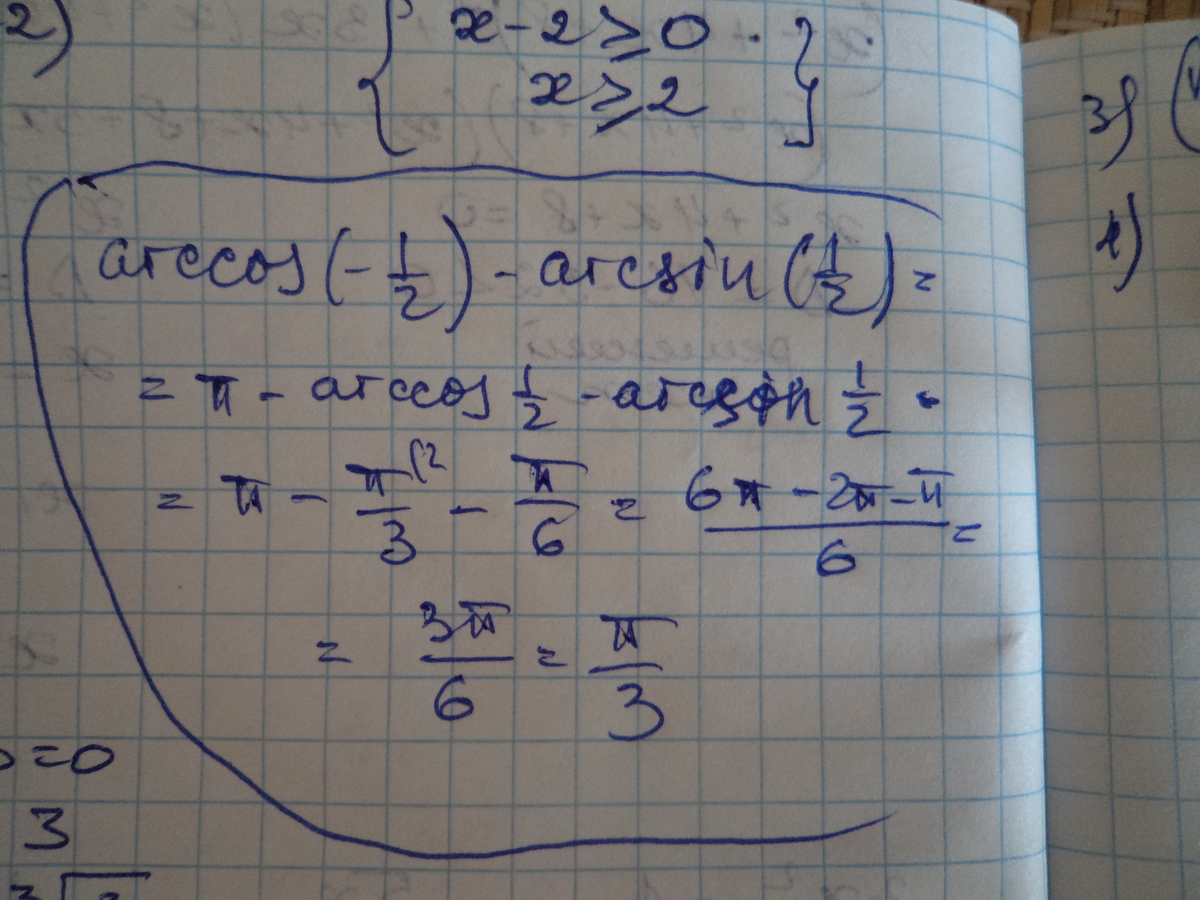 2) { x - 2 ≥ 0 . }
x ≥ 2
arccos(-1/2) - arcsin(1/2) =
= π - arccos 1/2 - arcsin 1/2 =
= π - π/3 (2 - π/6 = (6π - 2π - π)/6 =
= 3π/6 = π/3
= 0
3
3)
4)